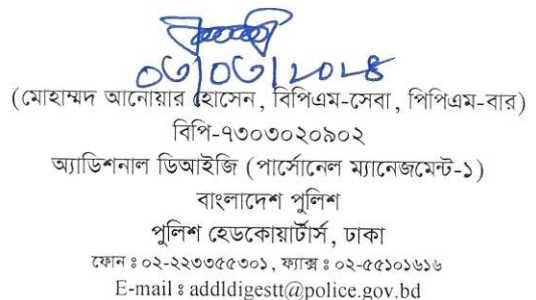 ০৩/০৩/২০২৪
(মোহাম্মদ আনোয়ার হোসেন, বিপিএম-সেবা, পিপিএম-বার)
বিপি-৭৩০৩০২০৯০২
অ্যাডিশনাল ডিআইজি (পার্সোনেল ম্যানেজমেন্ট-১)
বাংলাদেশ পুলিশ
পুলিশ হেডকোয়ার্টার্স, ঢাকা
ফোন ঃ ০২-২২৩৩৫৫৩০১, ফ্যাক্স ঃ ০২-৫৫১০১৬১৬
E-mail ঃ addldigestt@police.gov.bd